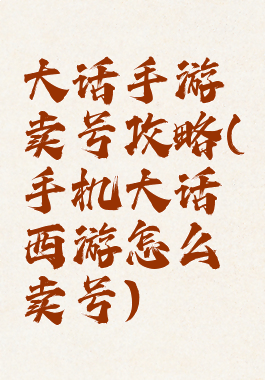 大话手游
卖号攻略(
手机大话
西游怎么
卖号)